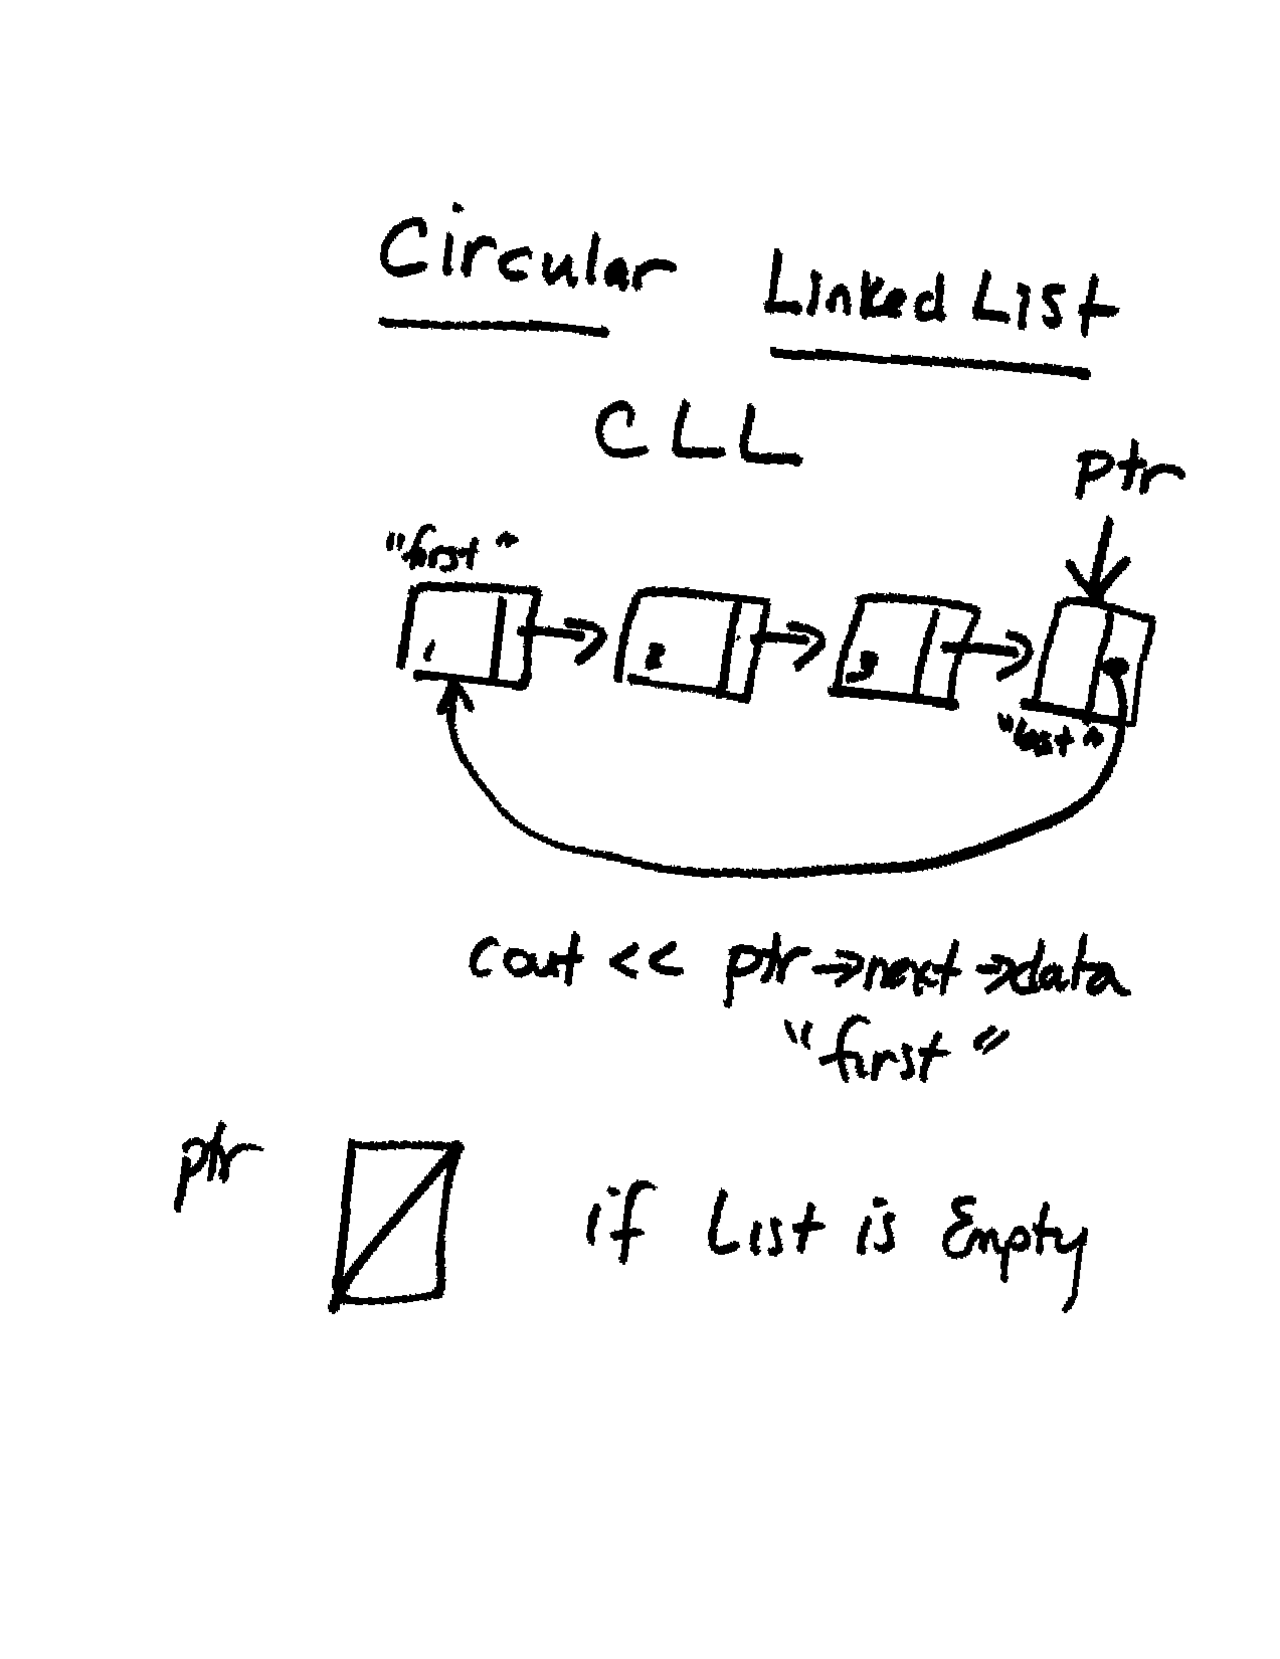 Circular Linked List
CLL
ptr
"first"
1 2 3
"last"
cout << ptr→next→data
"first"
ptr if List is Empty